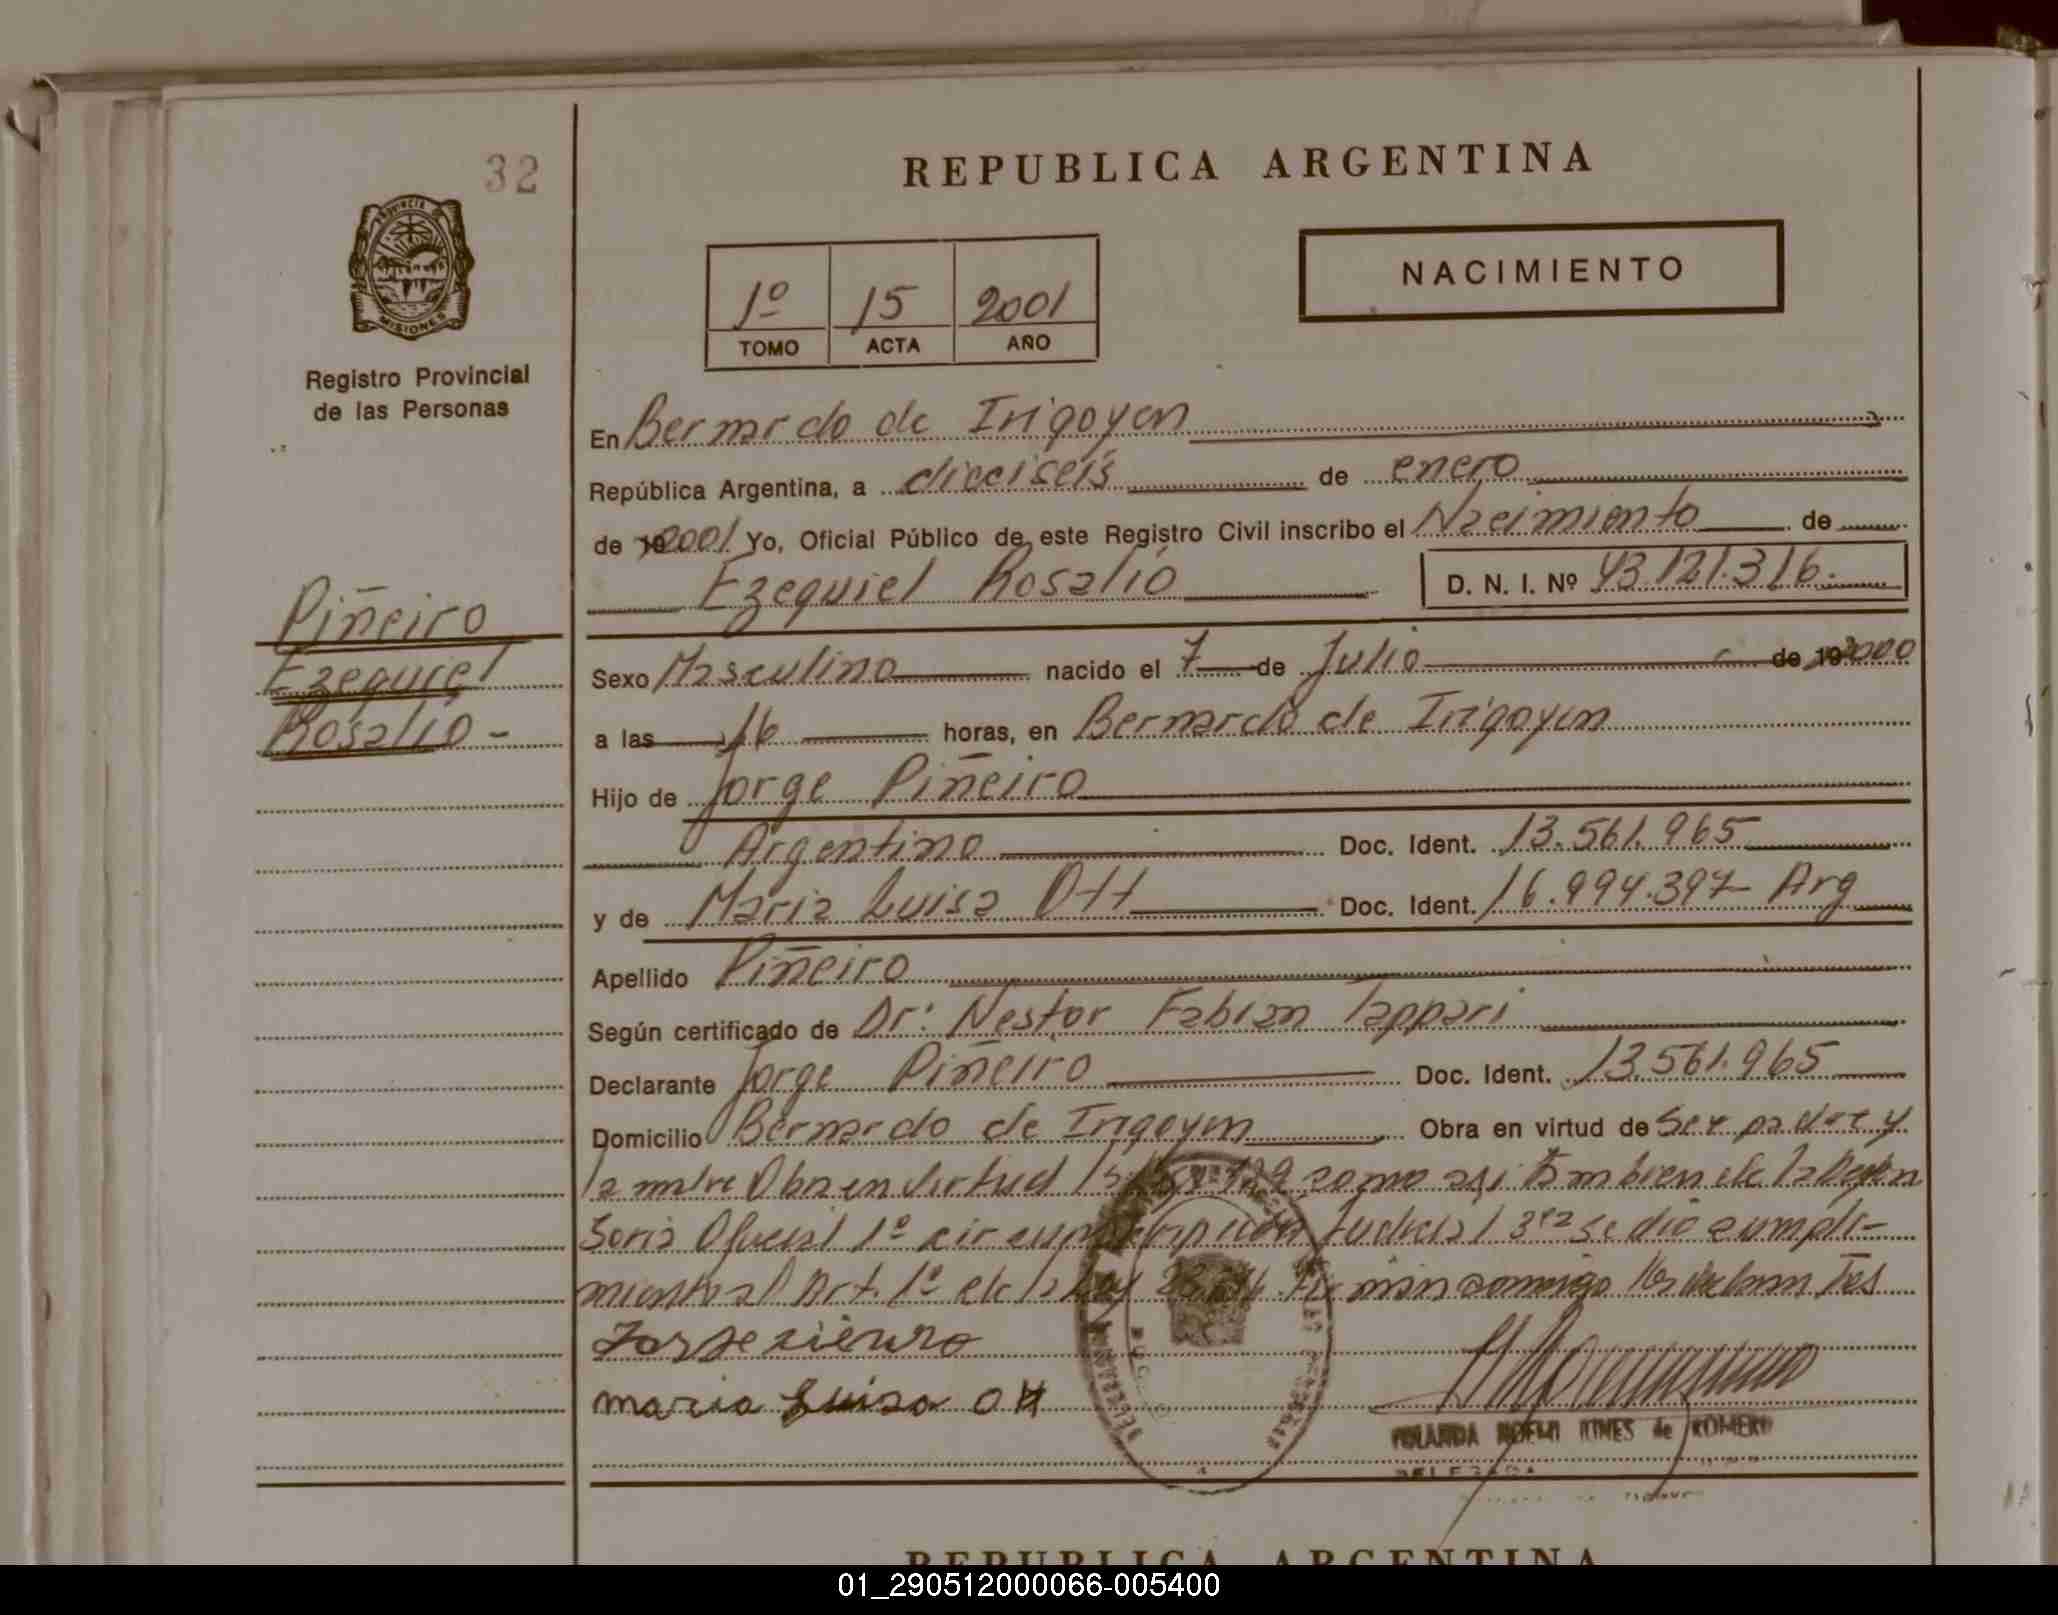 32
REPUBLICA ARGENTINA
PROVINCIA DE
MISIONES
Registro Provincial
de las Personas
NACIMIENTO
1º 15 2001
TOMO ACTA AÑO
En Bernardo de Irigoyen
República Argentina, a dieciseis de enero
de 2001 Yo, Oficial Público de este Registro Civil inscribo el Nacimiento de
Ezequiel Rosalio D. N. I. Nº 43.121.316.
Piñeiro
Ezequiel
Rosalio -
Sexo Masculino nacido el 7 de Julio de 2000
a las 16 horas, en Bernardo de Irigoyen
Hijo de Jorge Piñeiro
Argentino Doc. Ident. 13.561.965
y de Maria Luisa Ott Doc. Ident. 16.994.397 Arg
Apellido Piñeiro
Según certificado de Dr: Nestor Fabian Tappari
Declarante Jorge Piñeiro Doc. Ident. 13.561.965
Domicilio Bernardo de Irigoyen Obra en virtud de Ser padre y
la madre Obra en virtud como asi tambien de la Defen
soria Oficial 1º circunscripcion Judicial 3ra se dio cumpli-
miento al Art. 1º de la Ley Firman conmigo los declarantes
maria Luisa Ott
YOLANDA NOEMI de ROMERO
DELEGADA
REPUBLICA ARGENTINA
01_290512000066-005400